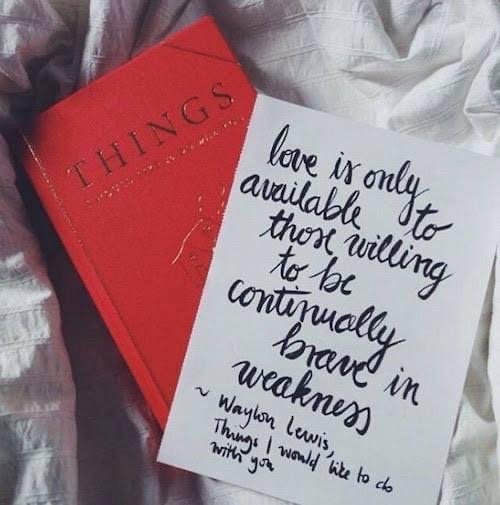 THINGS
love is only
available to
those willing
to be
continually
brave in
weakness
~ Waylon Lewis,
Things I would like to do
with you